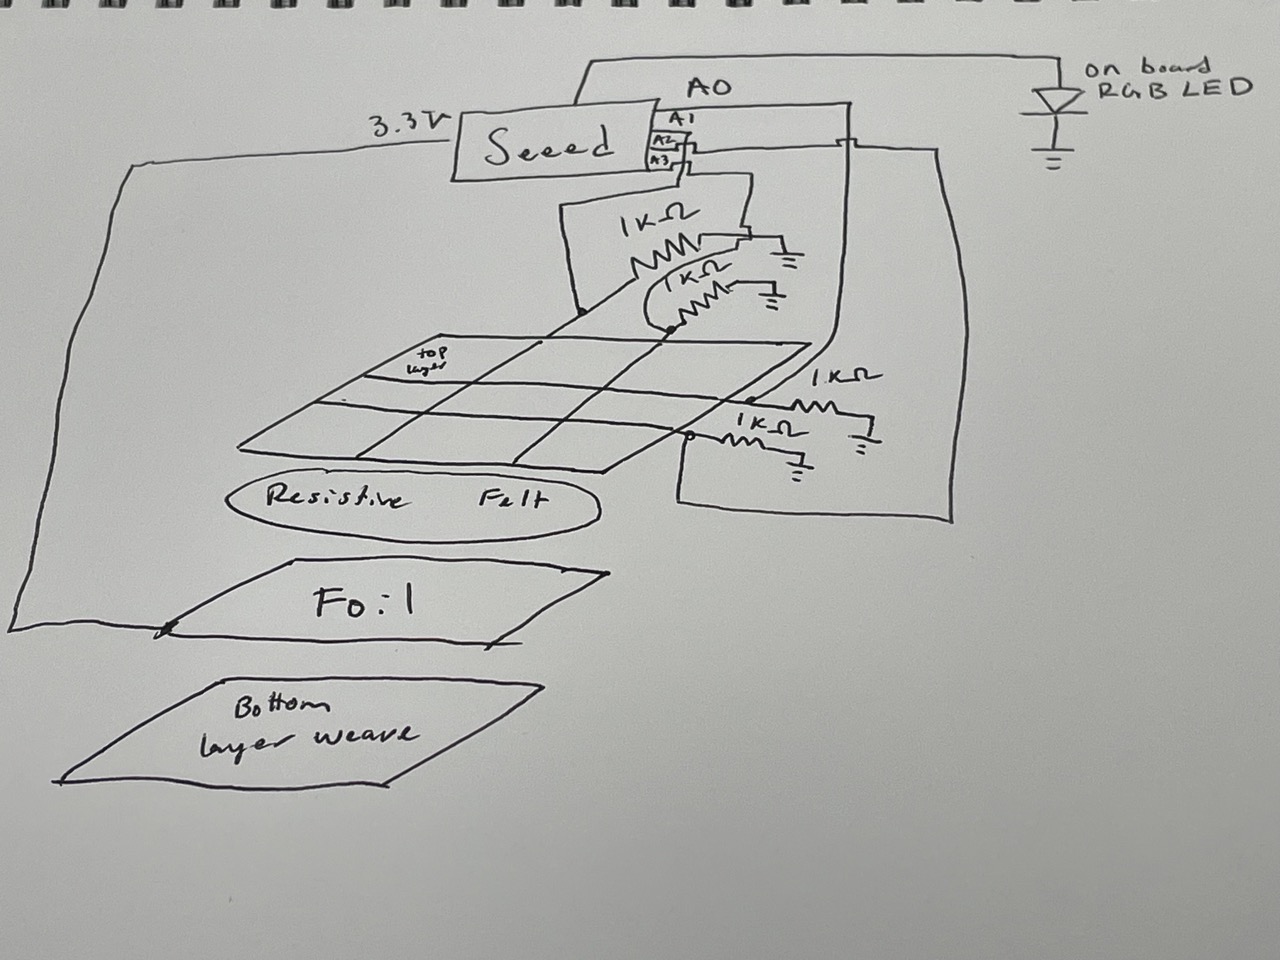 on board
RGB LED
A0
3.3V
A1
Seeed
A2
A3
1KΩ
1KΩ
top
layer
1KΩ
1KΩ
Resistive Felt
Foil
Bottom
layer weave